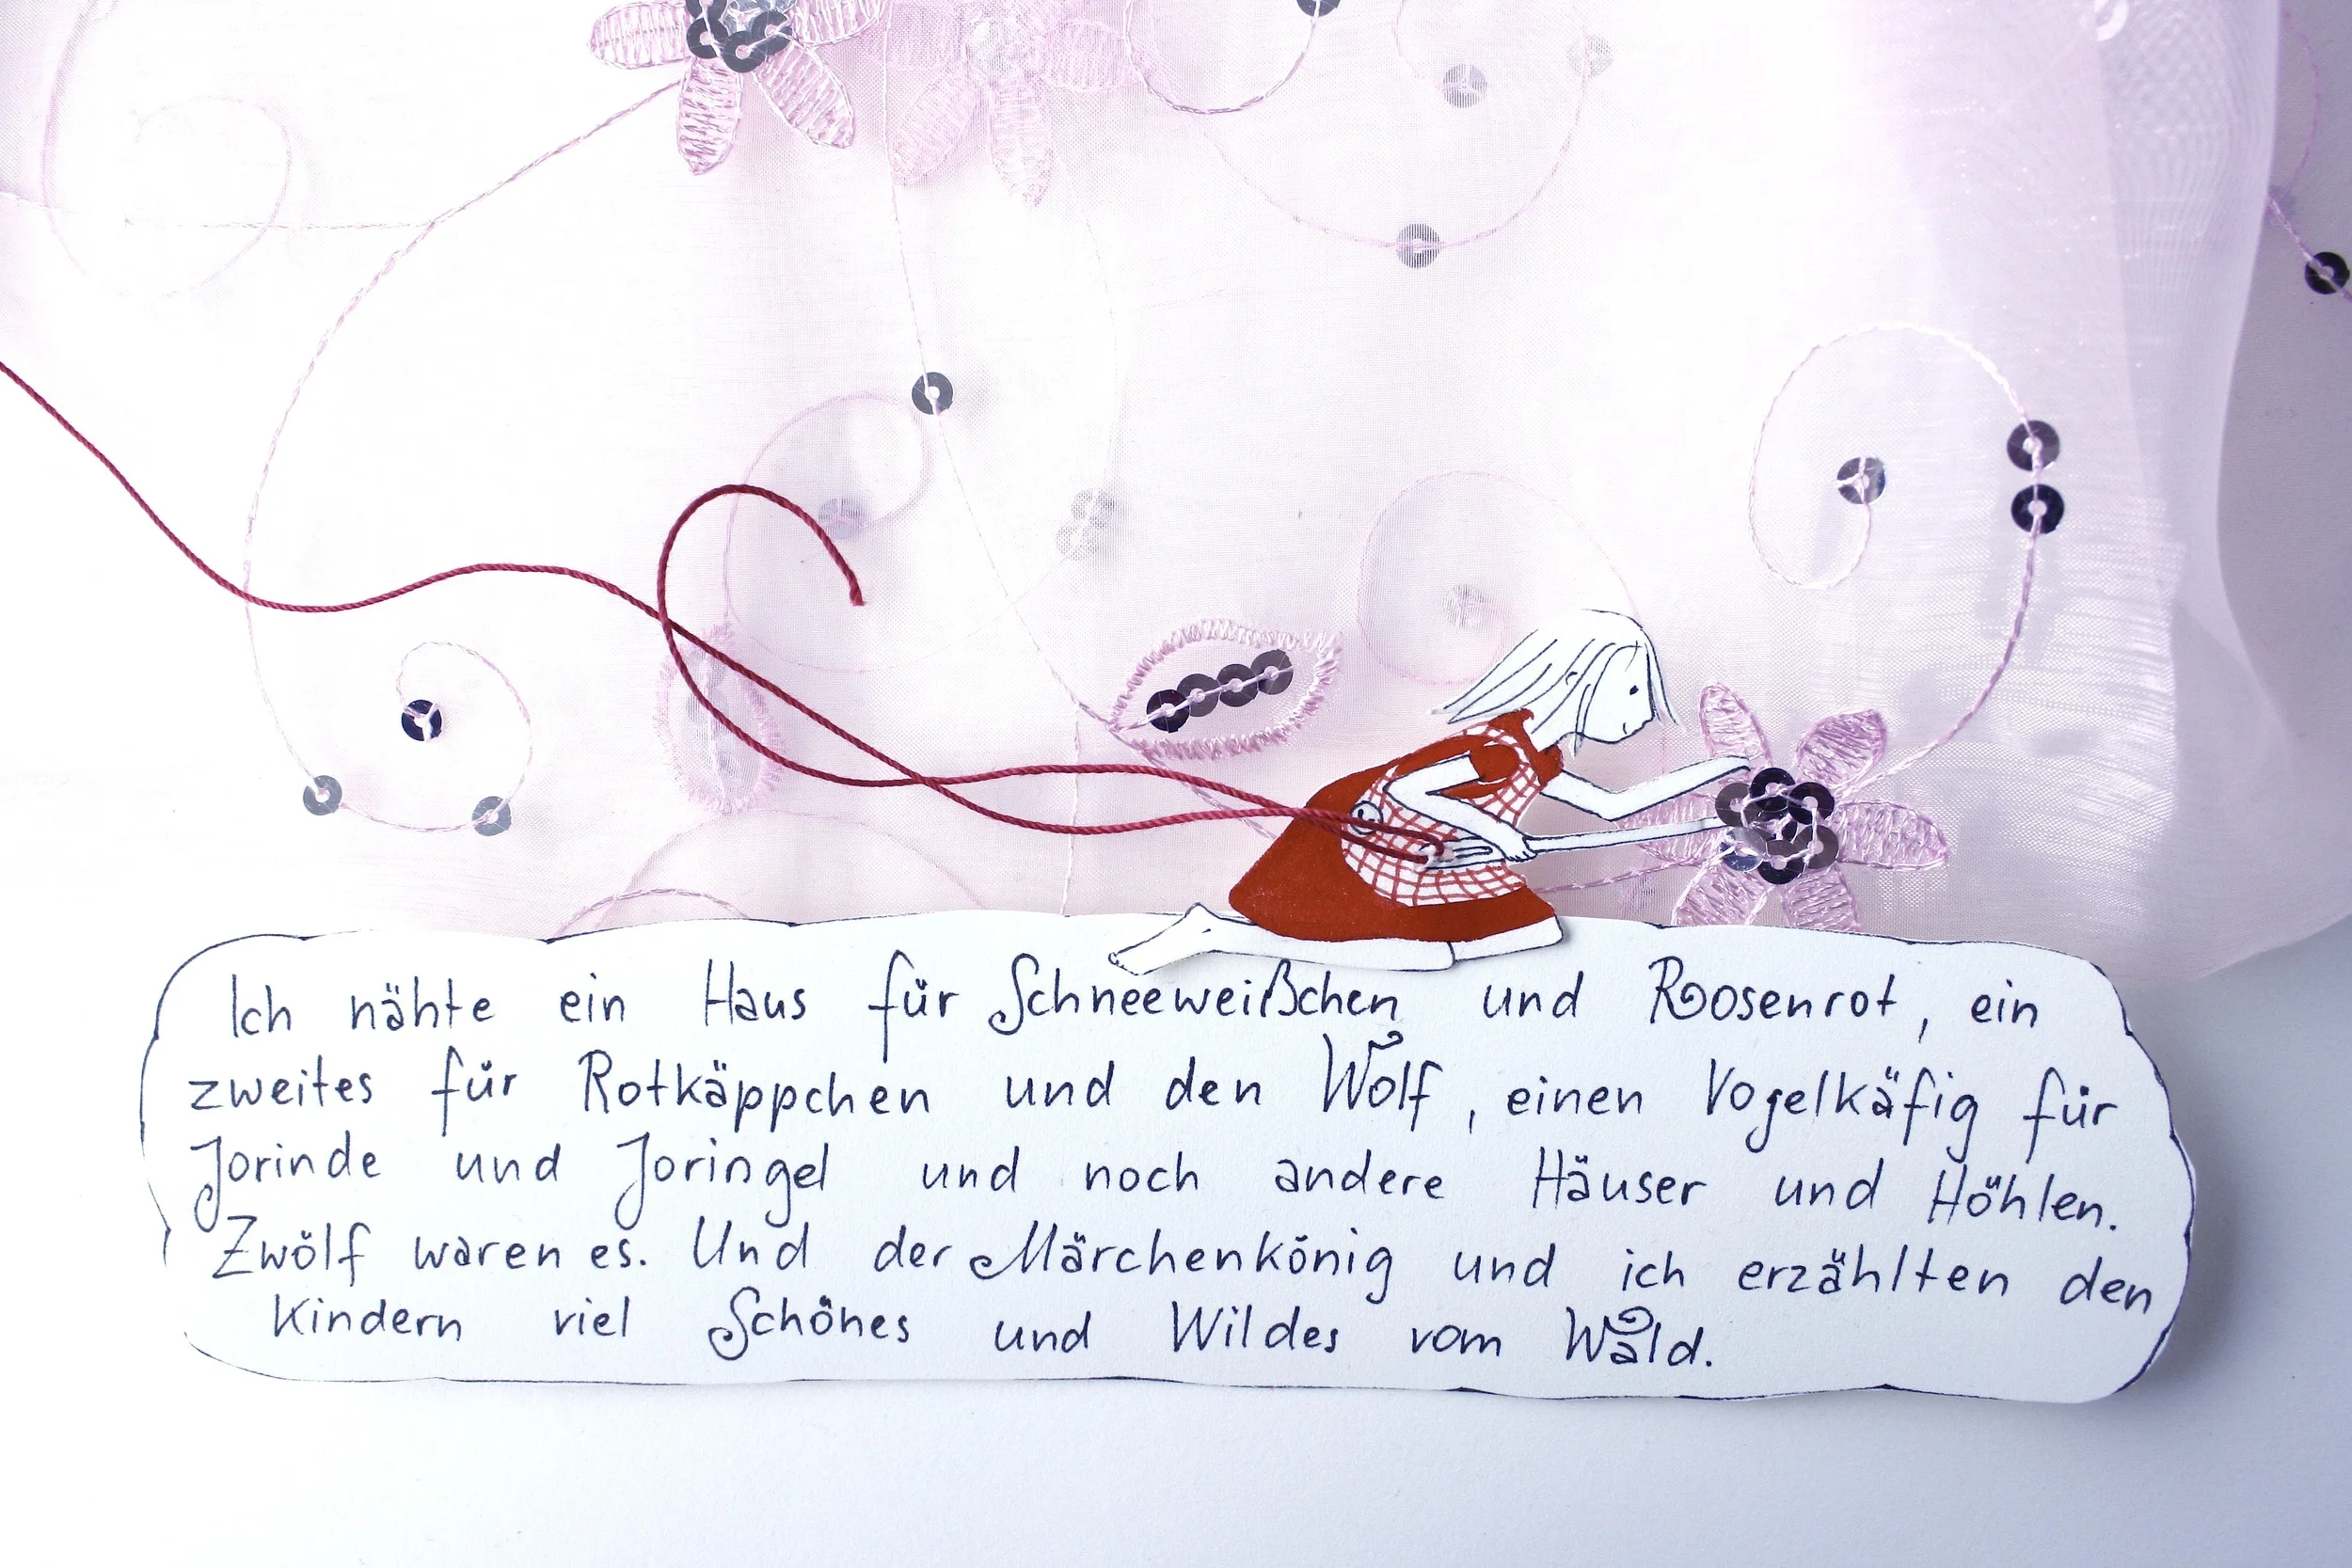 Ich nähte ein Haus für Schneeweißchen und Roosenrot, ein
zweites für Rotkäppchen und den Wolf, einen Vogelkäfig für
Jorinde und Joringel und noch andere Häuser und Höhlen.
Zwölf waren es. Und der Märchenkönig und ich erzählten den
Kindern viel Schönes und Wildes vom Wald.